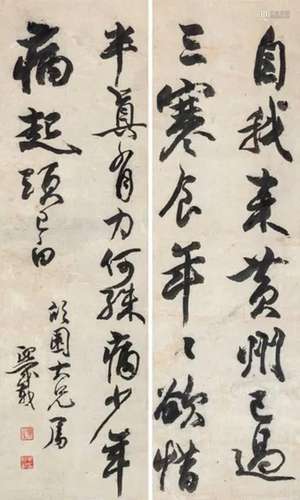 自我来黄州已過
三寒食年〻欲惜
半真有力何殊病少年
病起頭已白
園大兄属